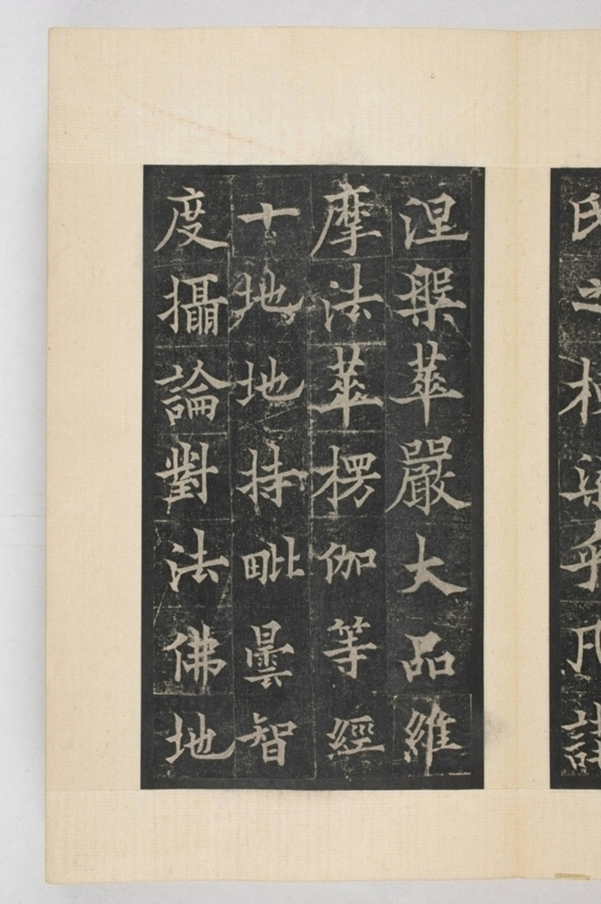 涅槃華嚴大品維
摩法華楞伽等經
十地地持毗曇智
度攝論對法佛地